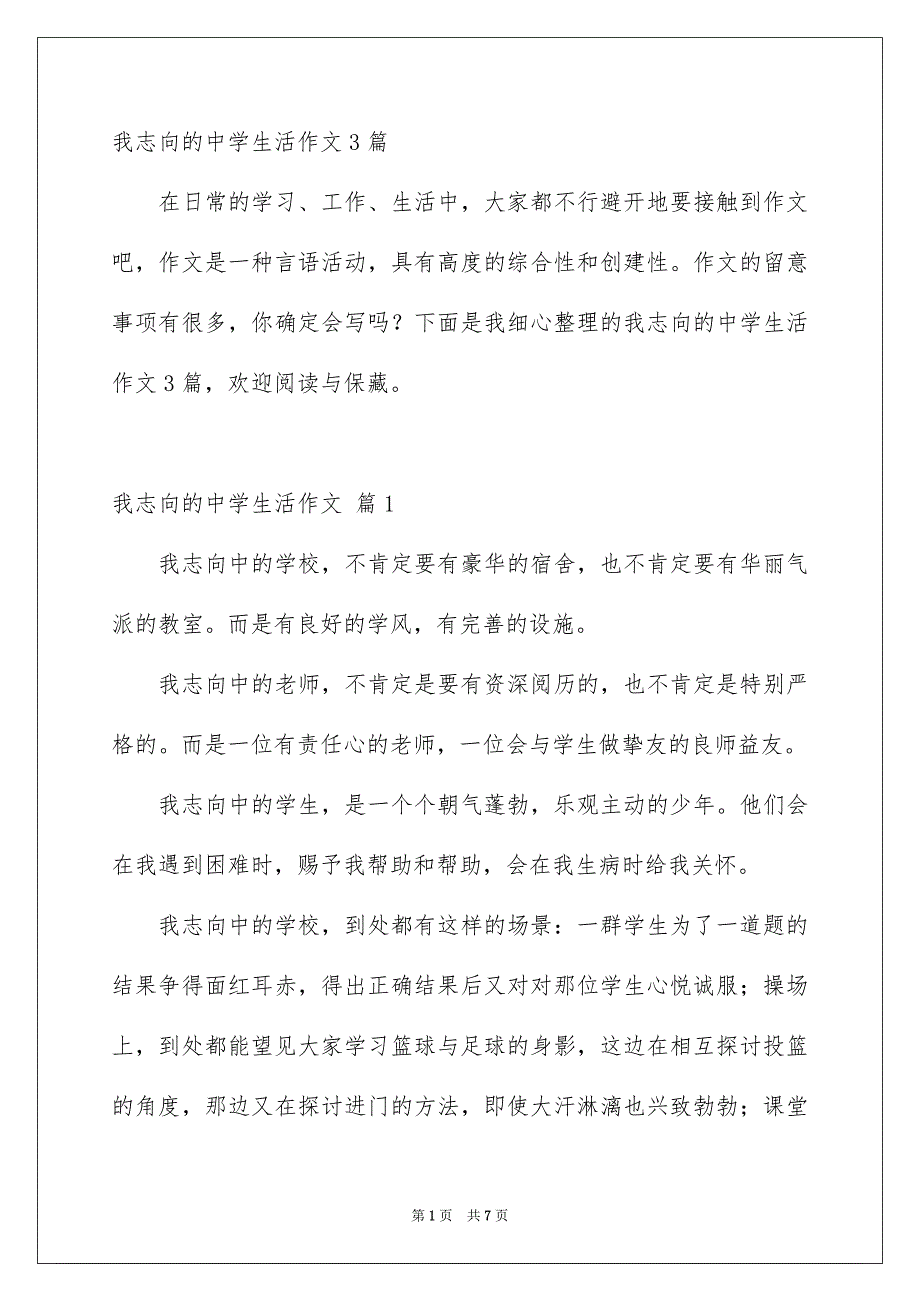 我志向的中学生活作文3篇
在日常的学习、工作、生活中，大家都不行避开地要接触到作文
吧，作文是一种言语活动，具有高度的综合性和创建性。作文的留意
事项有很多，你确定会写吗？下面是我细心整理的我志向的中学生活
作文3篇，欢迎阅读与保藏。
我志向的中学生活作文 篇1
我志向中的学校，不肯定要有豪华的宿舍，也不肯定要有华丽气
派的教室。而是有良好的学风，有完善的设施。
我志向中的老师，不肯定是要有资深阅历的，也不肯定是特别严
格的。而是一位有责任心的老师，一位会与学生做挚友的良师益友。
我志向中的学生，是一个个朝气蓬勃，乐观主动的少年。他们会
在我遇到困难时，赐予我帮助和帮助，会在我生病时给我关怀。
我志向中的学校，到处都有这样的场景：一群学生为了一道题的
结果争得面红耳赤，得出正确结果后又对对那位学生心悦诚服；操场
上，到处都能望见大家学习篮球与足球的身影，这边在相互探讨投篮
的角度，那边又在探讨进门的方法，即使大汗淋漓也兴致勃勃；课堂
第1页 共7页